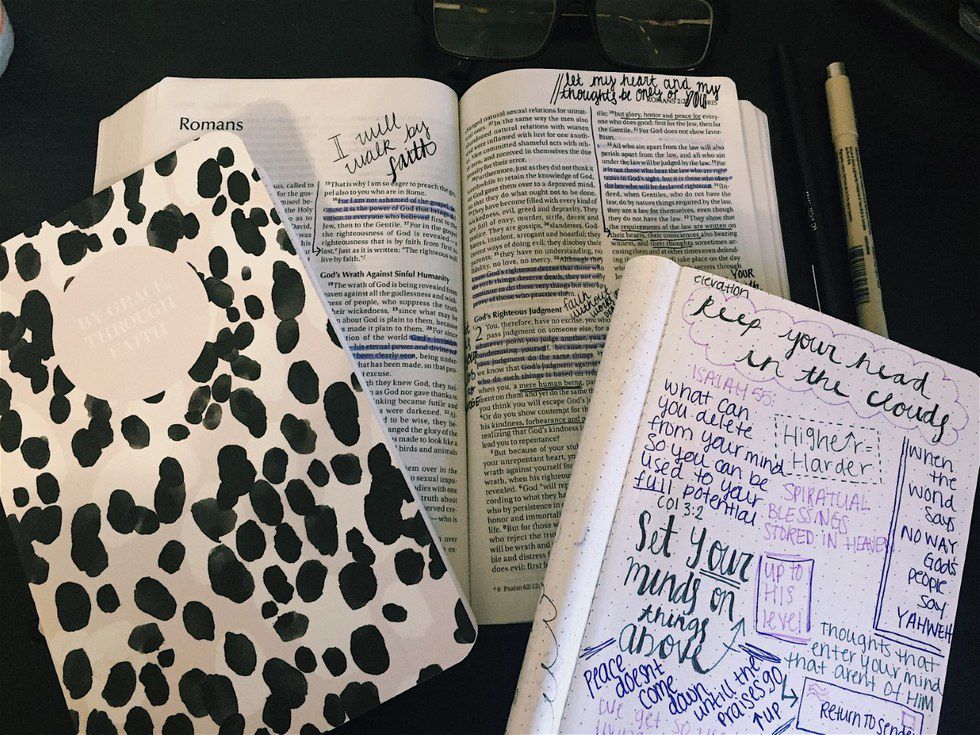 Romans
us, called to
for the gos-
mised be-
the Holy
David,
I will
walk by
faith
¹⁵That is why I am so eager to preach the gos-
pel also to you who are in Rome.
¹⁶For I am not ashamed of the gospel, be-
cause it is the power of God that brings sal-
vation to everyone who believes: first to the
Jew, then to the Gentile. ¹⁷For in the gospel
the righteousness of God is revealed—a
righteousness that is by faith from first to
last, just as it is written: "The righteous will
live by faith."
God's Wrath Against Sinful Humanity
¹⁸The wrath of God is being revealed from
heaven against all the godlessness and wick-
ness of people, who suppress the truth
their wickedness, ¹⁹since what may be
about God is plain to them, because
made it plain to them. ²⁰For since
of the world God's invisi-
his eternal power and divine na-
been clearly seen, being under-
has been made, so that peo-
excuse.
though they knew God, they nei-
him as God nor gave thanks to
thinking became futile and
were darkened.
to be wise, they be-
changed the glory of the
made to look like a
birds and animals
them over in the
to sexual impu-
bodies with one
truth about
who is
let my heart and my
thoughts be only of you
changed natural sexual relations for unnat-
ural ones. ²⁷In the same way the men also
abandoned natural relations with women
were inflamed with lust for one anoth-
Men committed shameful acts with oth-
er men, and received in themselves the due
penalty for their error.
just as they did not think it
worthwhile to retain the knowledge of God,
so God gave them over to a depraved mind,
that they do what ought not to be done.
They have become filled with every kind of
wickedness, evil, greed and depravity. They
are full of envy, murder, strife, deceit and
They are gossips, ³⁰slanderers, God-
haters, insolent, arrogant and boastful; they
invent ways of doing evil; they disobey their
parents; ³¹they have no understanding, no
fidelity, no love, no mercy. ³²Although they
know God's righteous decree that those who
do such things deserve death, they not only
continue to do these very things but also ap-
prove of those who practice them.
faith
without
works
God's Righteous Judgment
2 You, therefore, have no excuse, you who
pass judgment on someone else, for at
whatever point you judge another, you are
condemning yourself, because you who
pass judgment do the same things. ²Now
we know that God's judgment against those
who do such things is based on truth.
when you, a mere human being, pass
judgment on them and yet do the same
you think you will escape God's
Or do you show contempt for the
his kindness, forbearance and
realizing that God's kindness
lead you to repentance?
⁵But because of your stub-
your unrepentant heart, you
wrath against yourself for
wrath, when his righteous
revealed. ⁶God "will repay
cording to what they have
who by persistence in
honor and immortality
life. ⁸But for those who
who reject the truth
will be wrath and
distress for
does evil: first
ᵃ6 Psalm 62:12;
but glory, honor and peace for every-
one who does good: first for the Jew, then for
the Gentile. ¹¹For God does not show favor-
itism.
¹²All who sin apart from the law will also
perish apart from the law, and all who sin
under the law will be judged by the law. ¹³For
it is not those who hear the law who are righ-
teous in God's sight, but it is those who obey
the law who will be declared righteous.
deed, when Gentiles, who do not have the
law, do by nature things required by the law,
they are a law for themselves, even though
they do not have the law. ¹⁵They show that
the requirements of the law are written on
their hearts, their consciences also bearing
witness, and their thoughts sometimes ac-
cusing them and at other times even defend-
take place on the day
YOUR
BY GRACE
THROUGH
FAITH
elevation
keep your head
in the clouds
ISAIAH 55:
what can
you delete
from your mind
so you can be
used to your
full potential
Higher
Harder
SPIRATUAL
BLESSINGS
STORED IN HEAVEN
When
the
world
says
NO WAY
God's
people
say
YAHWEH
COL 3:2
Set Your
minds on
things
above
UP to
HIS
level
thoughts that
enter your mind
that arent of HIM
Return to sender
Peace
doesnt
come down
untill the
praises go
up
we get so